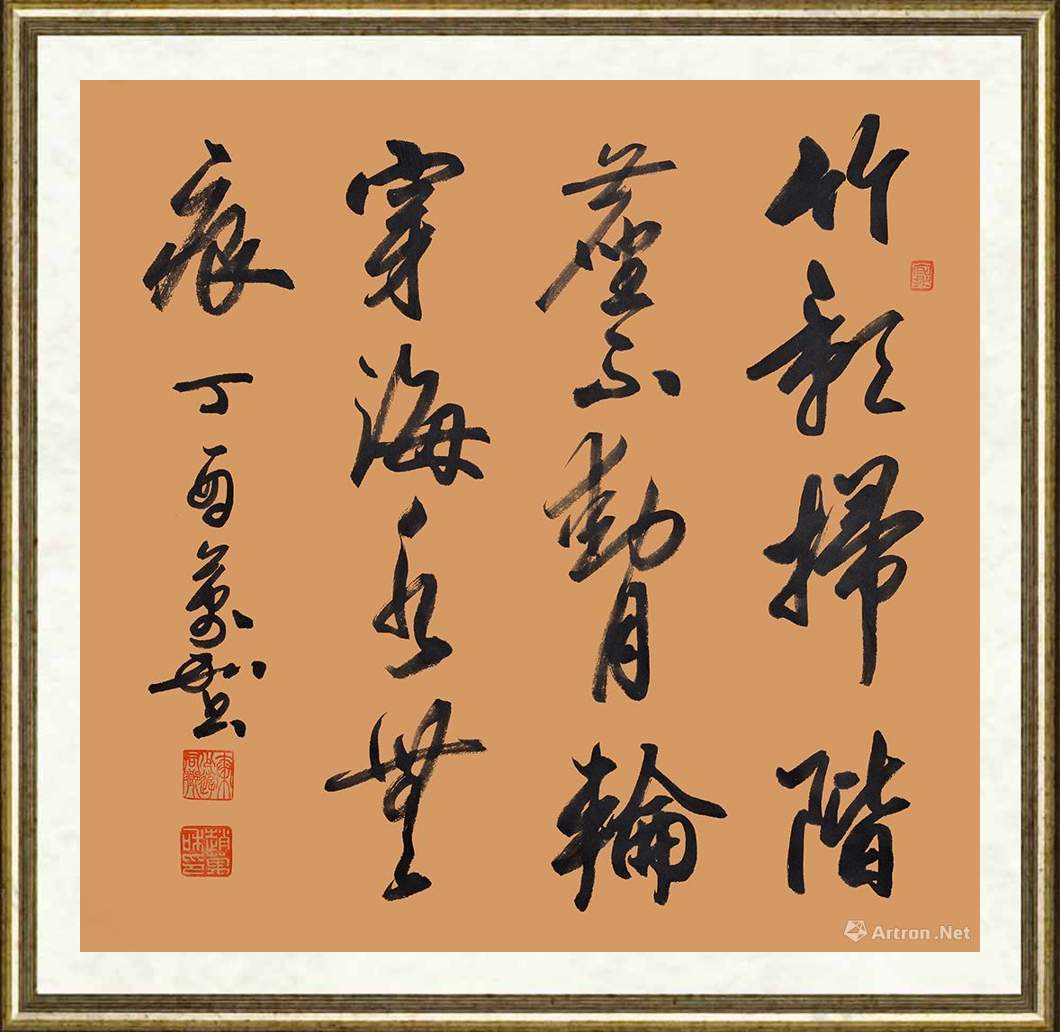 竹影掃階
塵不動月輪
穿海水無
痕 丁酉萬
Artron.Net